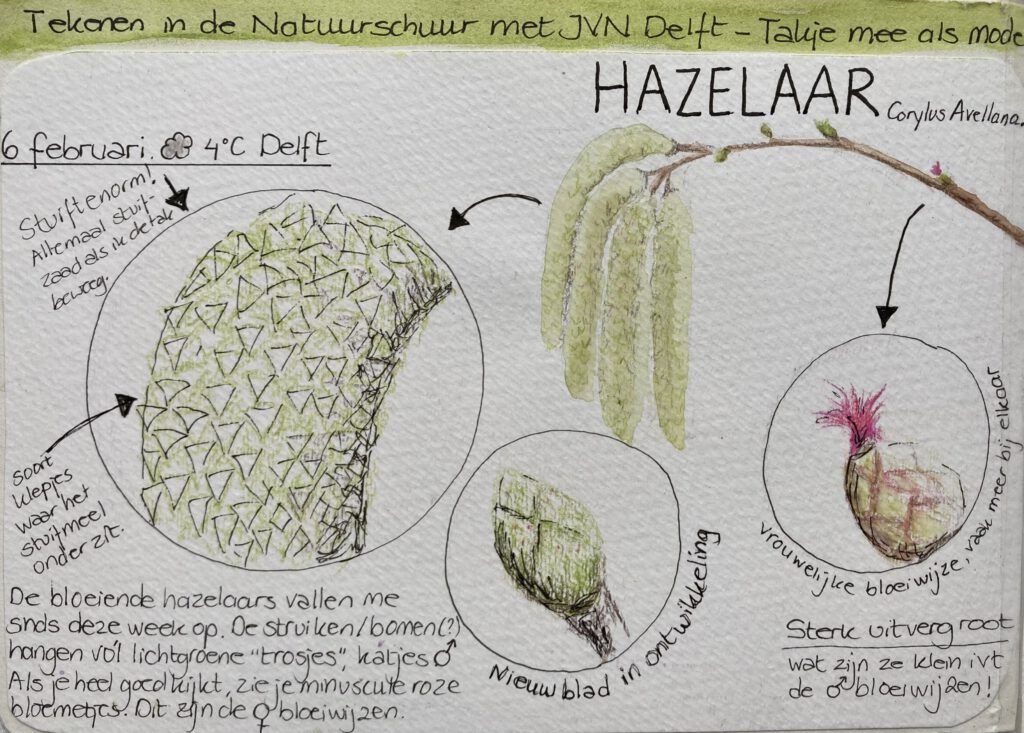 Tekenen in de Natuurschuur met JVN Delft - Takje mee als mode
HAZELAAR Corylus Avellana.
6 februari. 4°C Delft
Stuiftenorm!
Allemaal stuif-
zaad als ik de tak
beweeg.
soort
klepjes
waar het
stuifmeel
onder zit.
De bloeiende hazelaars vallen me
snds deze week op. De struiken/bomen(?)
hangen vol lichtgroene "trosjes", katjes ♂
Als je heel goed kijkt, zie je minuscule roze
bloemetjes. Dit zijn de ♀ bloeiwijzen.
Nieuw blad in ontwikkeling
vrouwelijke bloeiwijze, vaak meer bij elkaar
Sterk uitvergroot
wat zijn ze klein ivt
de ♂ bloeiwijzen!